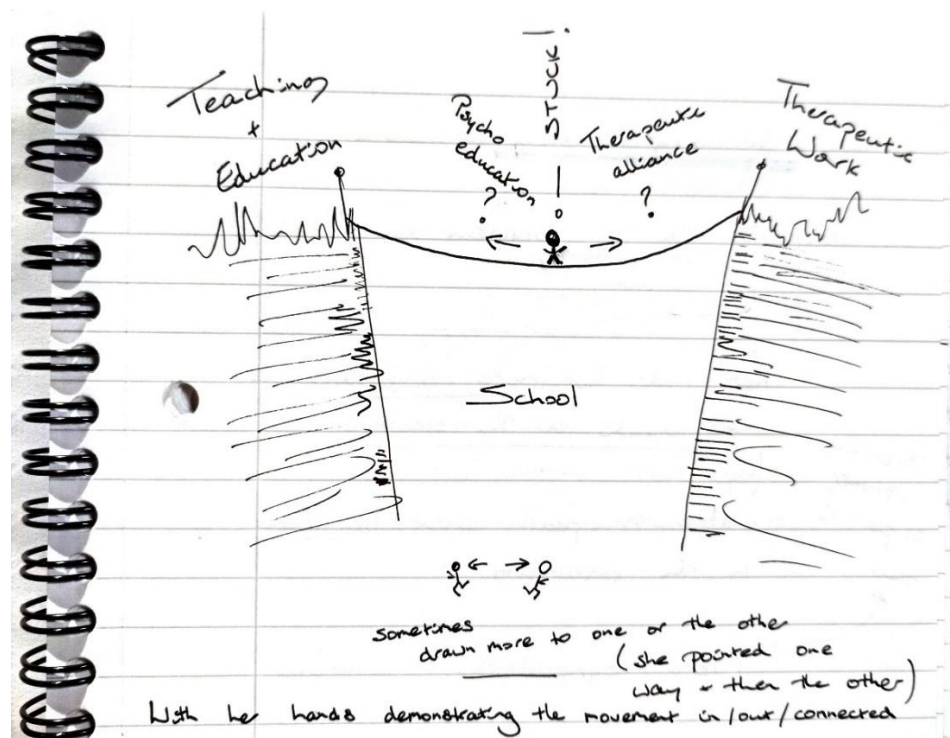 STUCK!
Teaching
+
Education
Psycho
education
?
Therapeutic
alliance
?
Therapeutic
Work
School
sometimes
drawn more to one or the other
(she pointed one
way + then the other)
With her hands demonstrating the movement in/out/connected